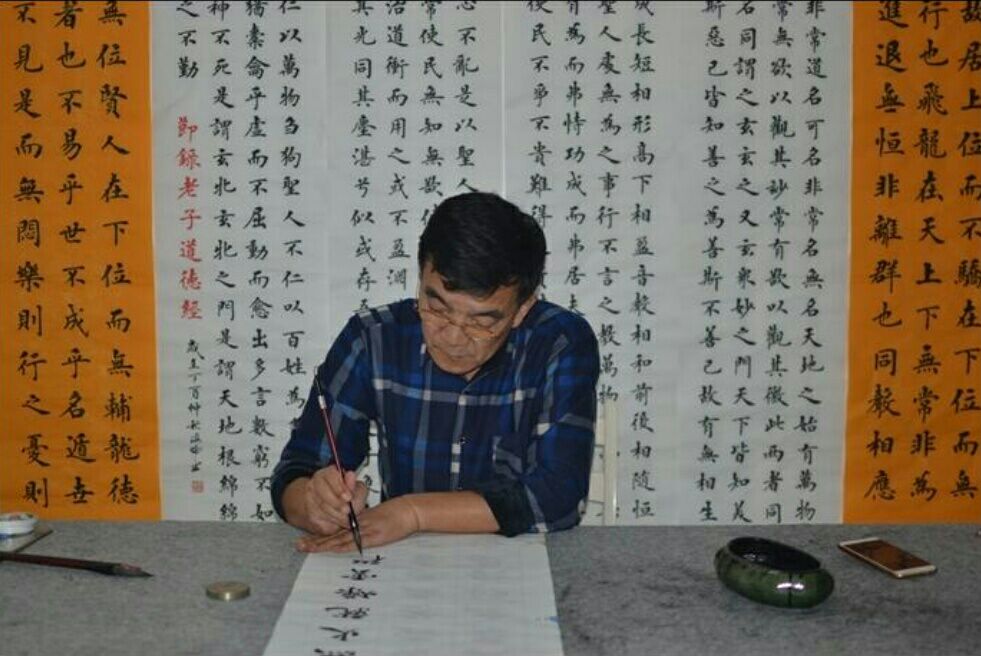 故居上位而不驕在下位而無
行也飛龍在天上下無常非為
進退無恒非離群也同聲相應
非常道名可名非常名無名天地之始有萬物
常無欲以觀其妙常有欲以觀其徼此兩者同
名同謂之玄玄之又玄衆妙之門天下皆知美
斯惡已皆知善之為善斯不善已故有無相生
成長短相形高下相盈音聲相和前後相隨恒
聖人處無為之事行不言之教萬物
有為而弗恃功成而弗居夫
使民不爭不貴難得
心不亂是以聖人
常使民無知無欲使
治道衝而用之或不盈淵
其光同其塵湛兮似或存吾
仁以萬物芻狗聖人不仁以百姓為
猶橐籥乎虛而不屈動而愈出多言數窮不如
神不死是謂玄牝玄牝之門是謂天地根綿綿
之不勤
節錄老子道德經
歲在丁酉仲秋
無位賢人在下位而無輔龍德
者也不易乎世不成乎名遁世
不見是而無悶樂則行之憂則